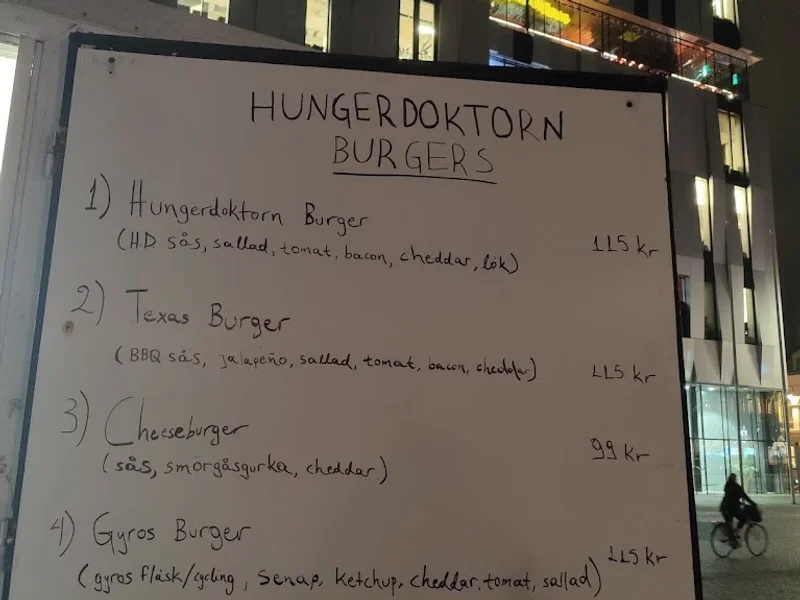 HUNGERDOKTORN
BURGERS
1) Hungerdoktorn Burger
(HD sås, sallad, tomat, bacon, cheddar, lök) 115 kr
2) Texas Burger
(BBQ sås, jalapeño, sallad, tomat, bacon, cheddar) 115 kr
3) Cheeseburger
(sås, smörgåsgurka, cheddar) 99 kr
4) Gyros Burger
(gyros fläsk/cycling, senap, ketchup, cheddar, tomat, sallad) 115 kr